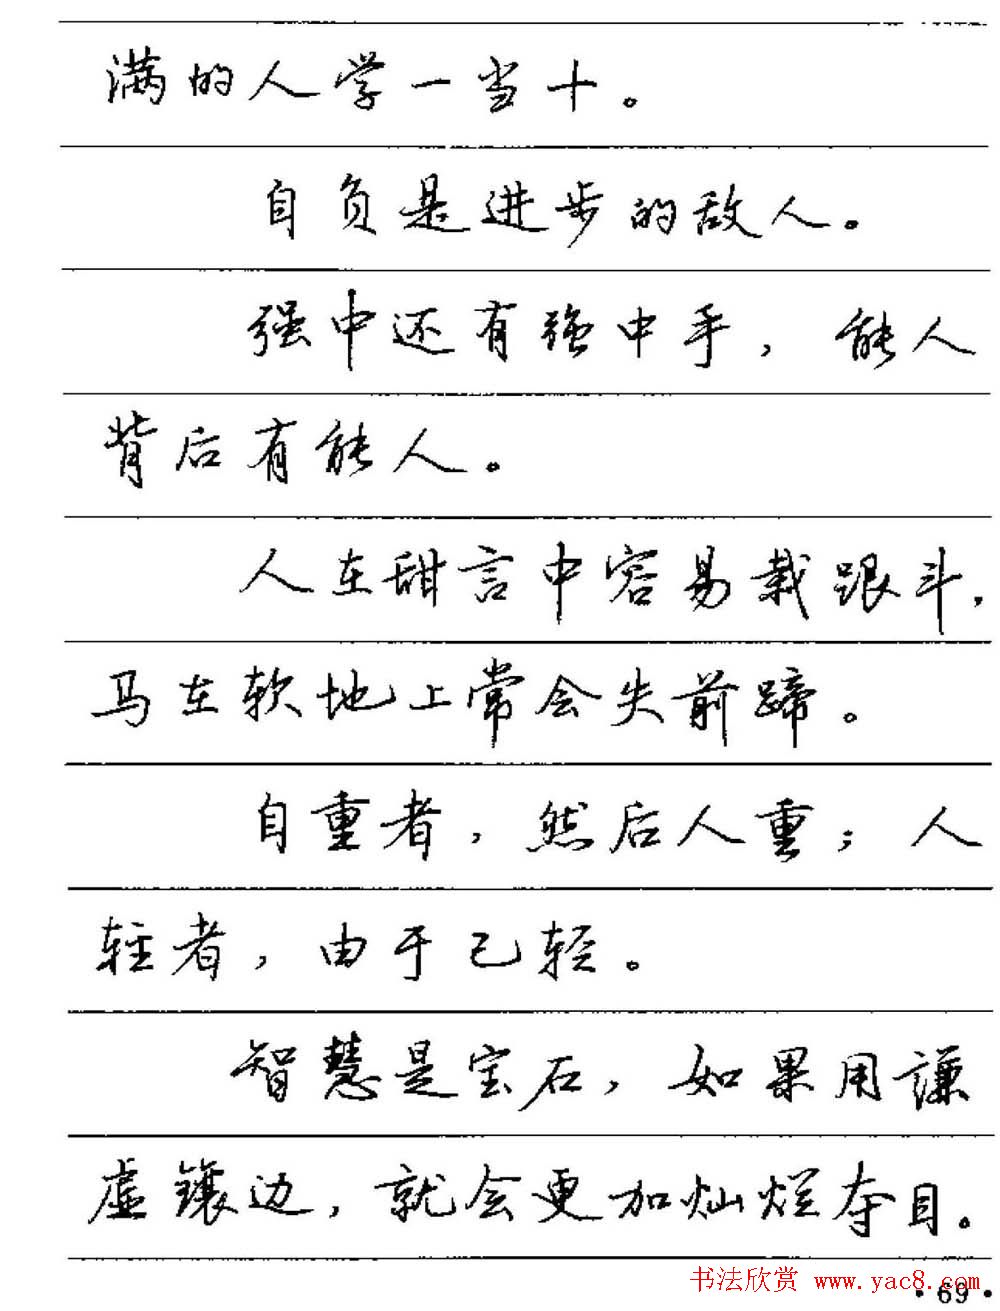 满的人学一当十。
自负是进步的敌人。
强中还有强中手，能人
背后有能人。
人在甜言中容易栽跟斗，
马在软地上常会失前蹄。
自重者，然后人重；人
轻者，由于己轻。
智慧是宝石，如果用谦
虚镶边，就会更加灿烂夺目。
书法欣赏 www.yac8.com
·69·